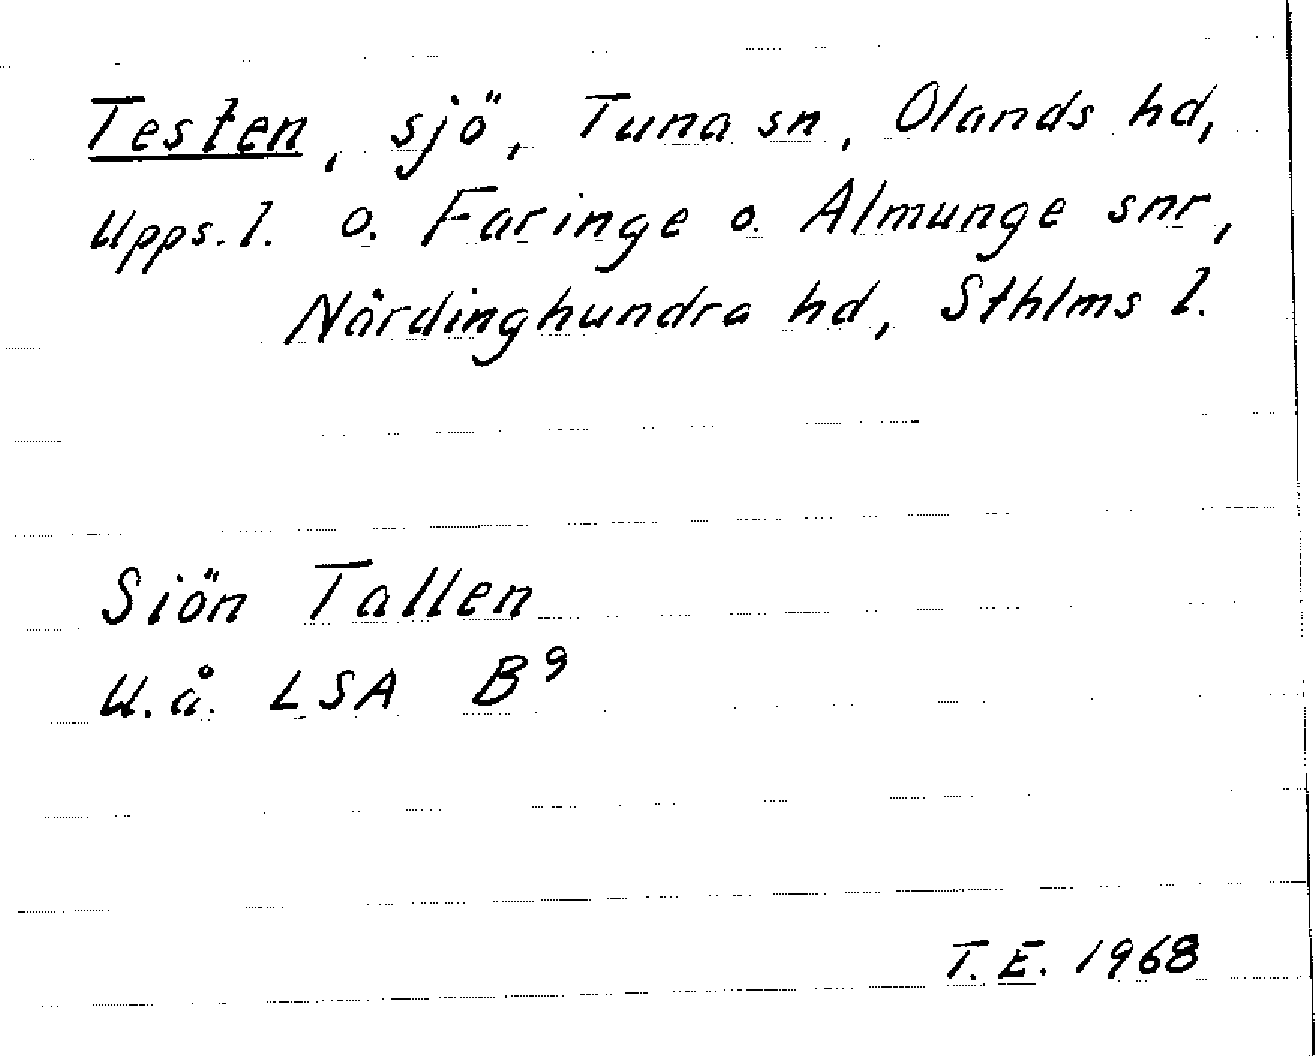 Testen, sjö, Tuna sn, Olands hd,
Upps. l. o. Faringe o. Almunge snr,
Närdinghundra hd, Sthlms l.
Siön Tallen
U.å. LSA B⁹
T.E. 1968